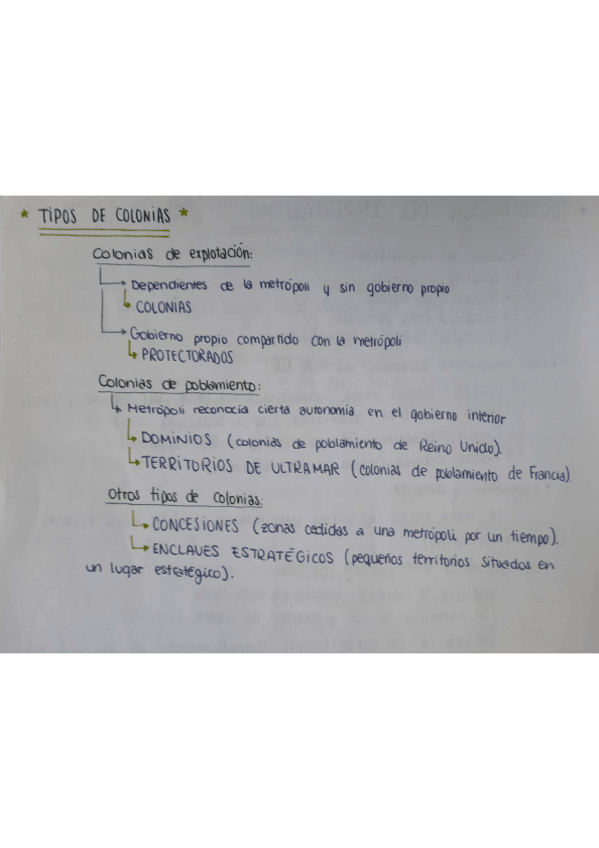 * TIPOS DE COLONIAS *
Colonias de explotación:
Dependientes de la metrópoli y sin gobierno propio
COLONIAS
Gobierno propio compartido con la metrópoli
PROTECTORADOS
Colonias de poblamiento:
Metrópoli reconocía cierta autonomía en el gobierno interior
DOMINIOS (colonias de poblamiento de Reino Unido).
TERRITORIOS DE ULTRAMAR (colonias de poblamiento de Francia).
Otros tipos de colonias:
CONCESIONES (zonas cedidas a una metrópoli por un tiempo).
ENCLAVES ESTRATÉGICOS (pequeños territorios situados en
un lugar estratégico).